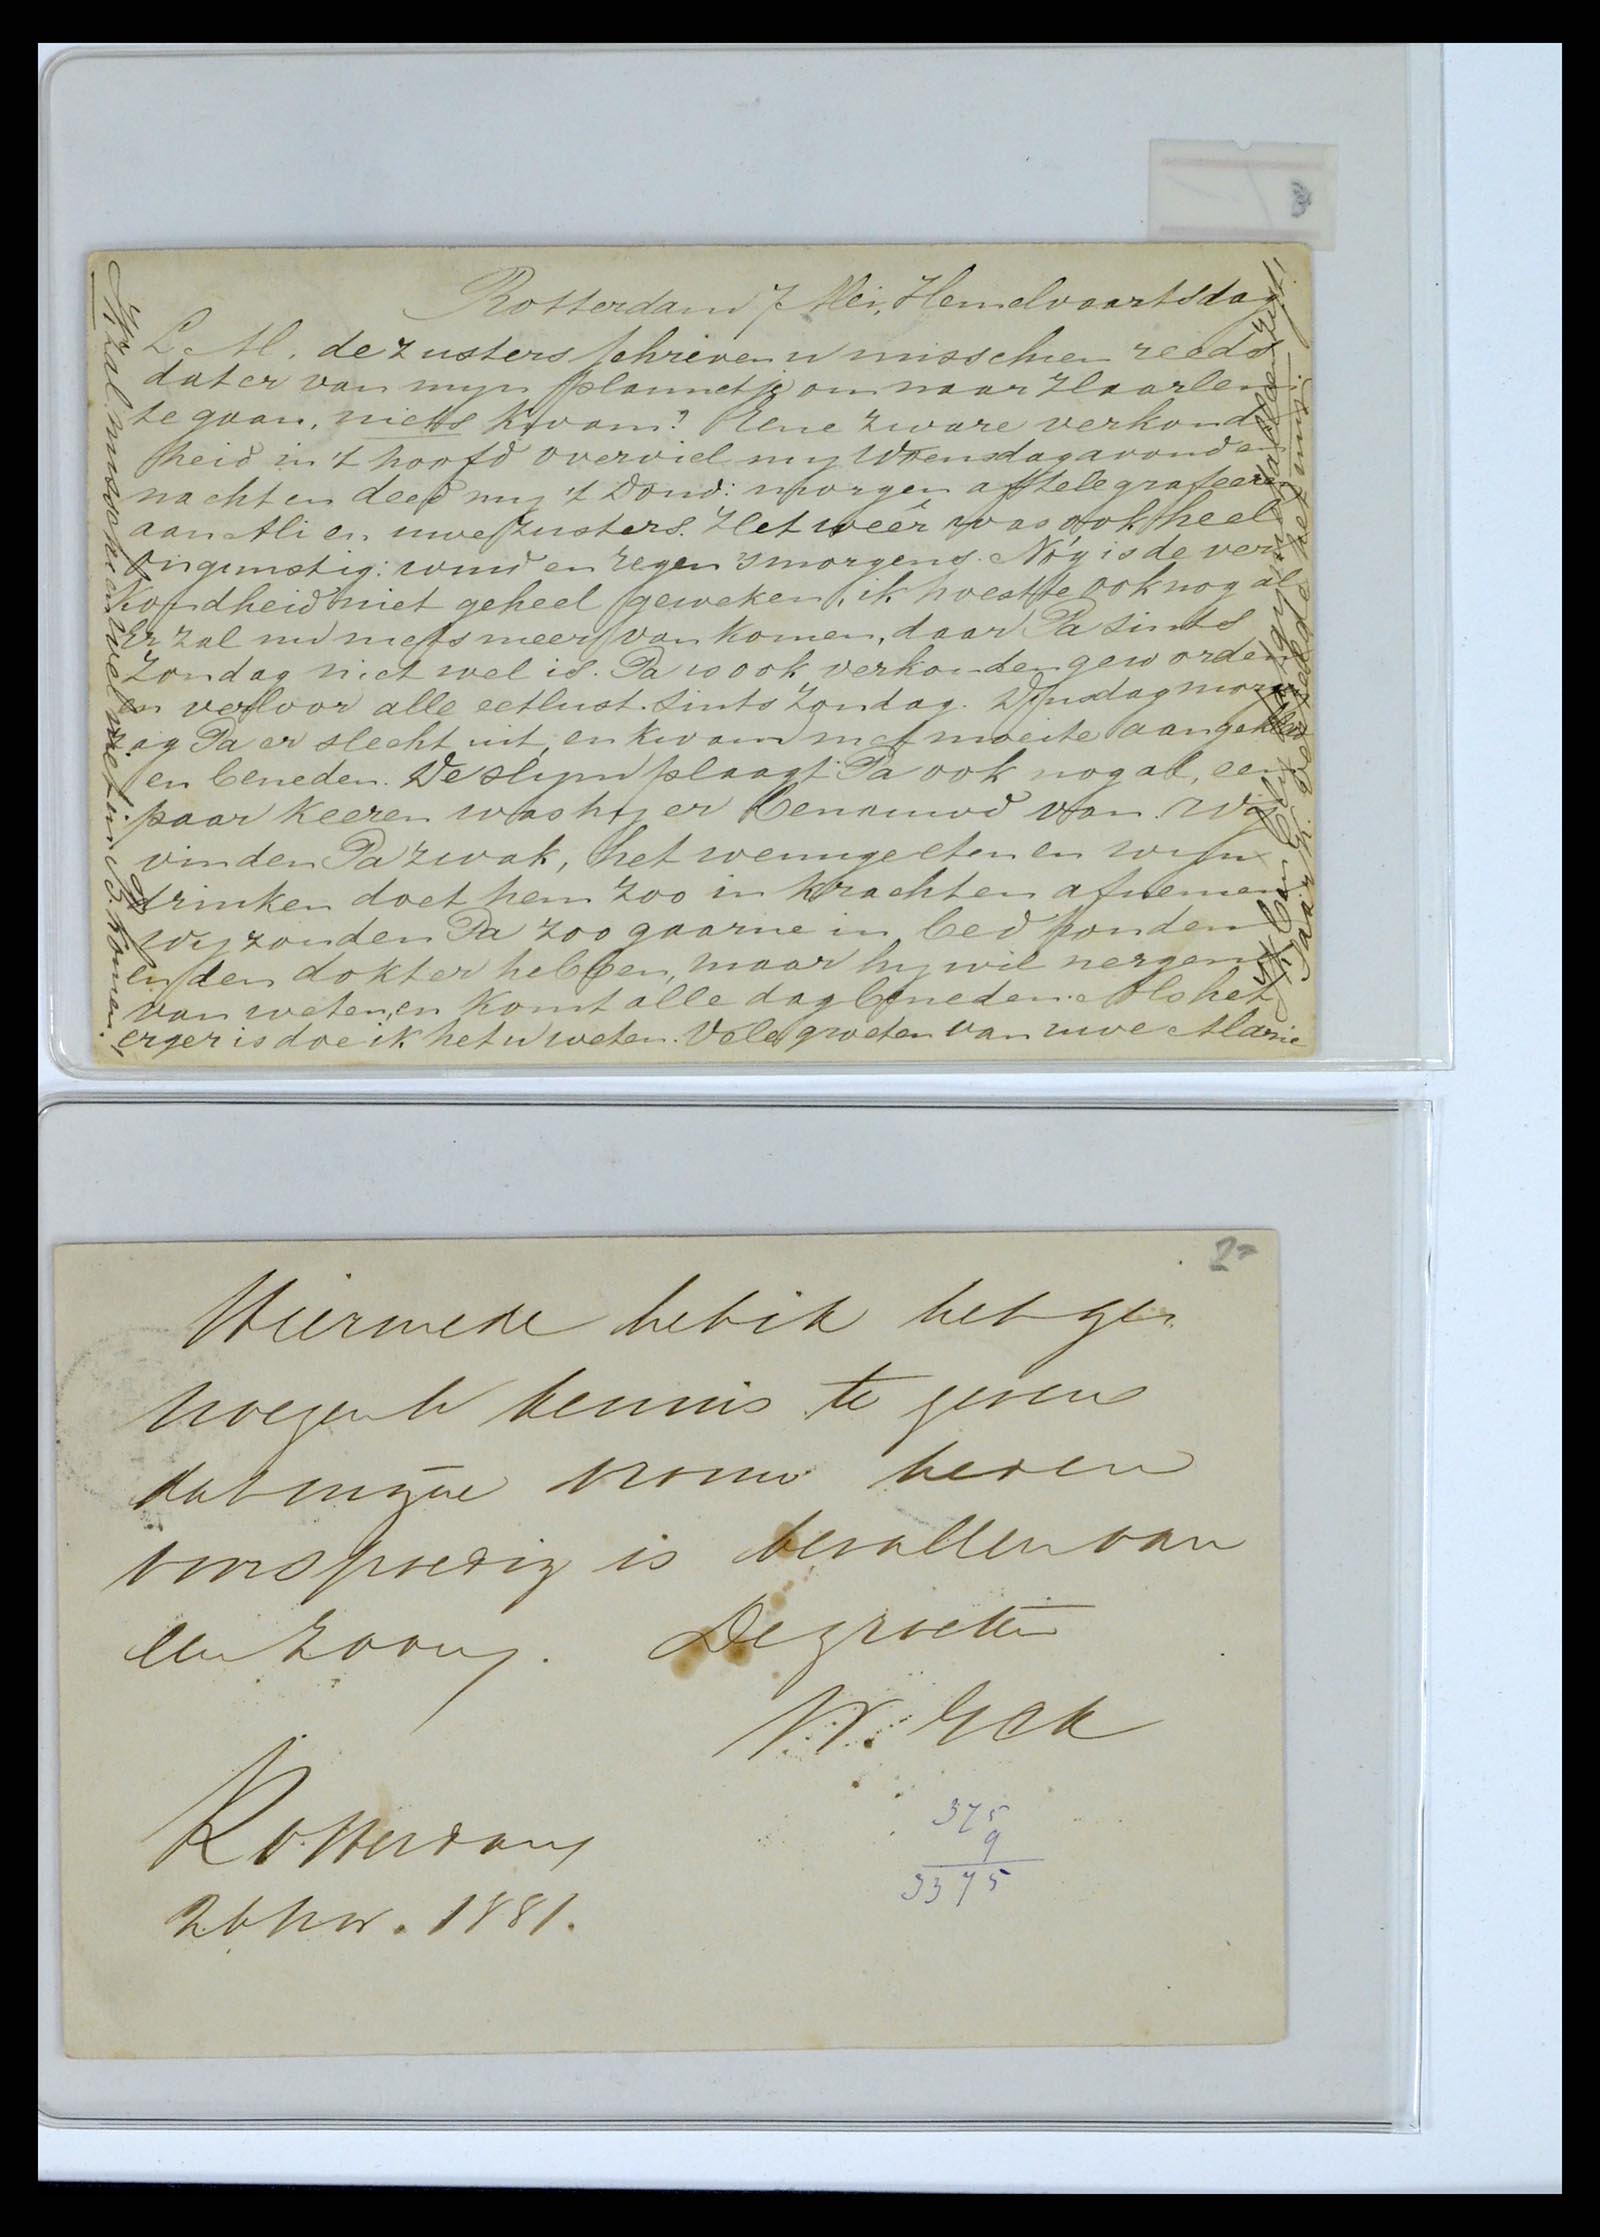 Rotterdam 7 Mei, Hemelvaartsdag
L. M. de zusters schreven u misschien reeds
dat er van myn plannetje om naar Haarlem
te gaan, niets kwam? Eene zware verkoud
heid in 't hoofd overviel my Woensdagavond en
nacht en deed my 't Dond: morgen aftelegrafeeren
aan Mi en uwe zusters. Het weêr was ook heel
ongunstig: wind en regen 's morgens. Nóg is de ver
koudheid niet geheel geweken, ik hoestte ook nog al
Er zal nu niets meer van komen, daar Pa sints
Zondag niet wel is. Pa is ook verkouden geworden
en verloor alle eetlust sints Zondag. Dynsdagmorgen
zag Pa er slecht uit, en kwam met moeite aangekleed
en beneden. De slym plaagt Pa ook nog al, een
paar keeren was hy er benauwd van. Wij
vinden Pa zwak, het weinige eten en wyn
drinken doet hem zoo in krachten afnemen
Wy zouden Pa zoo gaarne in bed houden
en den dokter hebben, maar hy wil nergens
van weten, en komt alle dag beneden. Als het
erger is doe ik het u weten. Vele groeten van uwe Marie
Ik zal misschien wel niet in B. komen.
2=
Hiermede heb ik het ge
noegen U kennis te geven
dat mijne vrouw heden
voorspoedig is bevallen van
een zoon. De groeten
W. Eck
Rotterdam
26 Nov. 1881.
375
9
3375